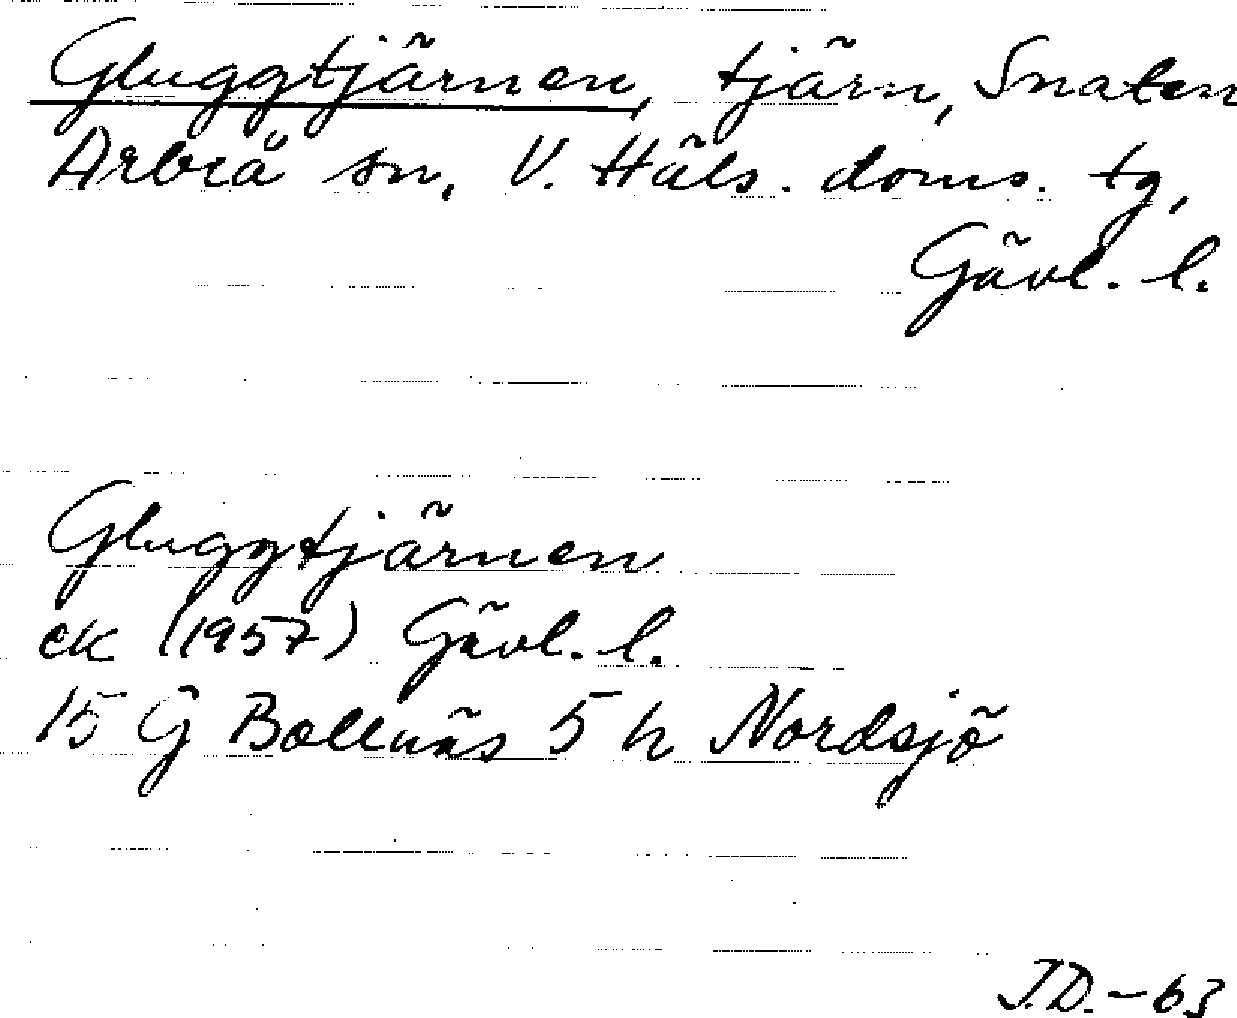 Gluggtjärnen, tjärn, Snaten
Arbrå sn, V. Häls. doms. tg,
Gävl. l.
Gluggtjärnen
ek (1957) Gävl. l.
15 G Bollnäs 5 h Nordsjö
J.D. – 63